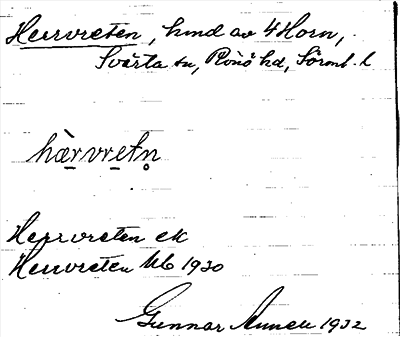 Herrvreten, hmd av 4 Horn,
Svärta sn, Rönö hd, Sörml. l
hærvretn
Herrvreten ek
Herrvreten Mb 1930
Gunnar Annell 1932